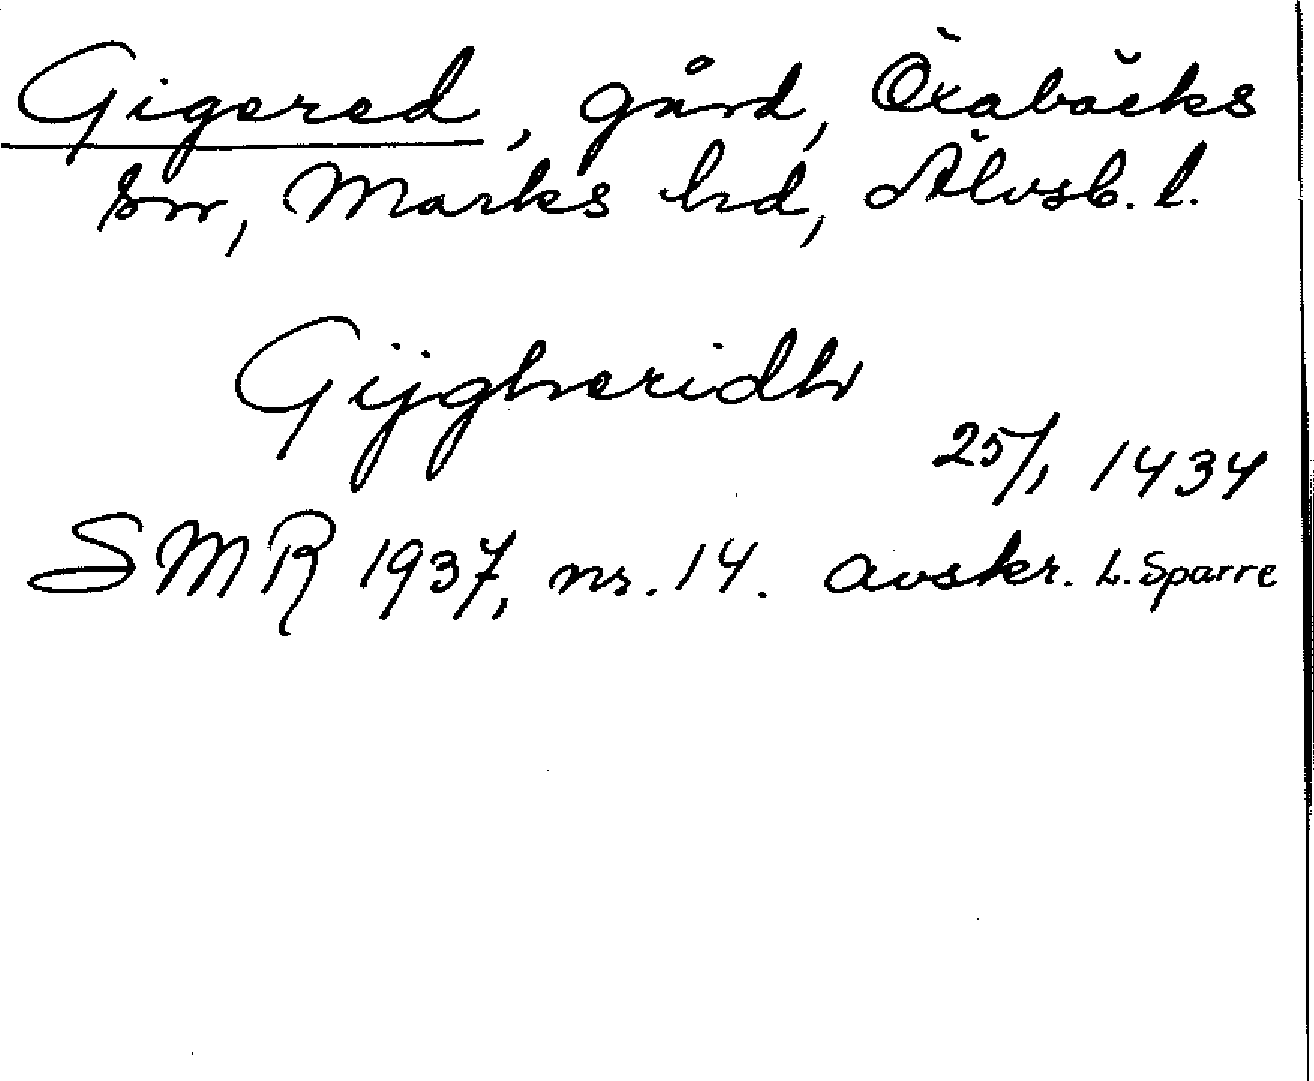 Gigered, gård, Öxabäcks
sn, Marks hd, Älvsb. l.
Gijgheridh
25/1 1434
SMR 1937, nr. 14. avskr. L. Sparre